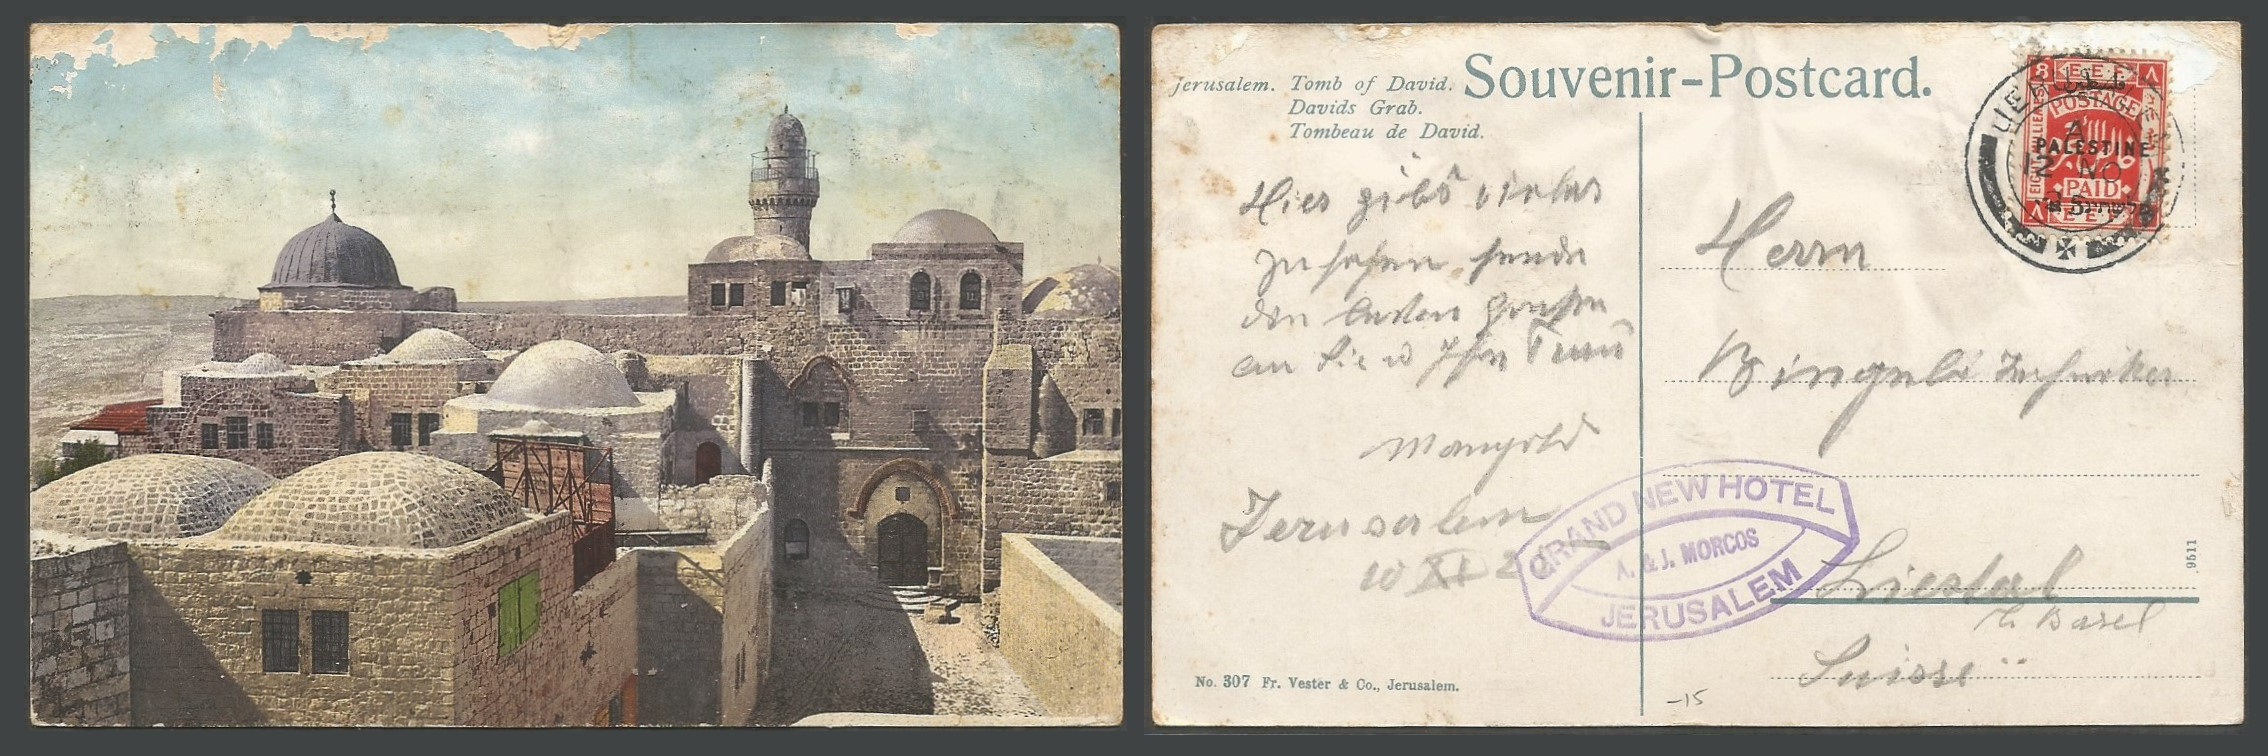 Jerusalem. Tomb of David.
Davids Grab.
Tombeau de David.
Souvenir-Postcard.
E.E.F.
فلسطين
POSTAGE
PALESTINE
PAID
E.E.F.
12 NO
Hier gibts vieles
zu sehen sende
den besten Grüsse
an Sie u Ihre Frau
Mangold
Jerusalem
10 XI 2
Herrn
Bingeli Techniker
Liestal
b. Basel
Suisse
GRAND NEW HOTEL
A. & J. MORCOS
JERUSALEM
No. 307 Fr. Vester & Co., Jerusalem.
9511
-15